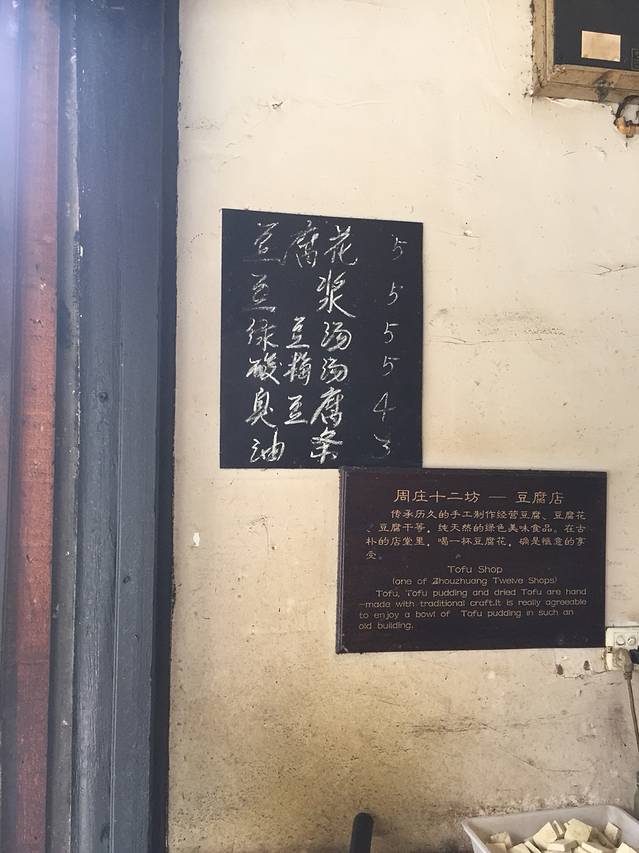 豆腐花 5
豆浆 5
绿豆汤 5
酸梅汤 5
臭豆腐 4
油条 3
周庄十二坊 — 豆腐店
传承历久的手工制作经营豆腐、豆腐花
、豆腐干等，纯天然的绿色美味食品。在古
朴的店堂里，喝一杯豆腐花，确是惬意的享
受。
Tofu Shop
(one of Zhouzhuang Twelve Shops)
Tofu, Tofu pudding and dried Tofu are hand
-made with traditional craft.It is really agreeable
to enjoy a bowl of Tofu pudding in such an
old building.